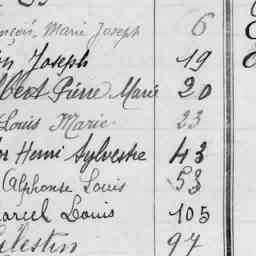 nçois, Marie Joseph 6
n Joseph 19
lbert Pierre Marie 20
Louis Marie 23
n Henri Sylvestre 43
Alphonse Louis 53
arcel Louis 105
élestin 97